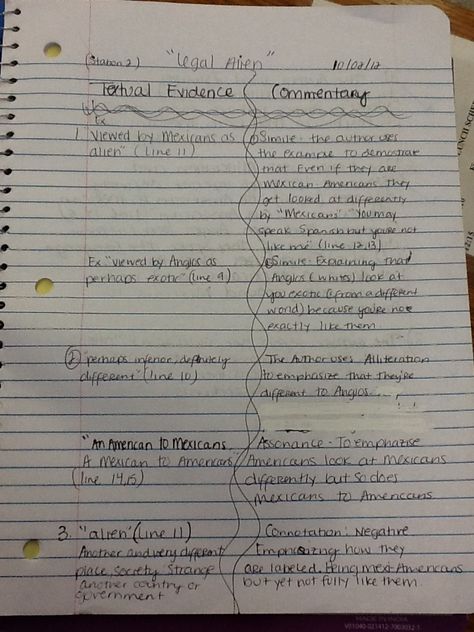 (Station 2) "Legal Alien" 10/02/12
Textual Evidence Commentary
Ex
1. "Viewed by Mexicans as
alien" (line 11)
Simile - the author uses
the example to demostrate
that Even if they are
Mexican-Americans they
get looked at differently
by "Mexicans" "You may
speak Spanish but you're not
like me" (line 12,13)
Ex "viewed by Anglos as
perhaps exotic" (line 9)
Simile - Explaining that
Anglos (whites) look at
you exotic (from a different
world) because you're not
exactly like them
2. "perhaps inferior, definitely
different" (line 10)
The Author uses Alliteration
to emphasize that they're
different to Anglos.
"An American to Mexicans
A Mexican to Americans"
(line 14,15)
Assonance - To emphazise
Americans look at Mexicans
differently but so does
Mexicans to Americans.
3. "alien" (line 11)
Another and very different
place, society. Strange
another country or
government
Connotation: Negative
Emphasizing how they
are labeled. Being Mexi Americans
but yet not fully like them.
MADE IN INDIA